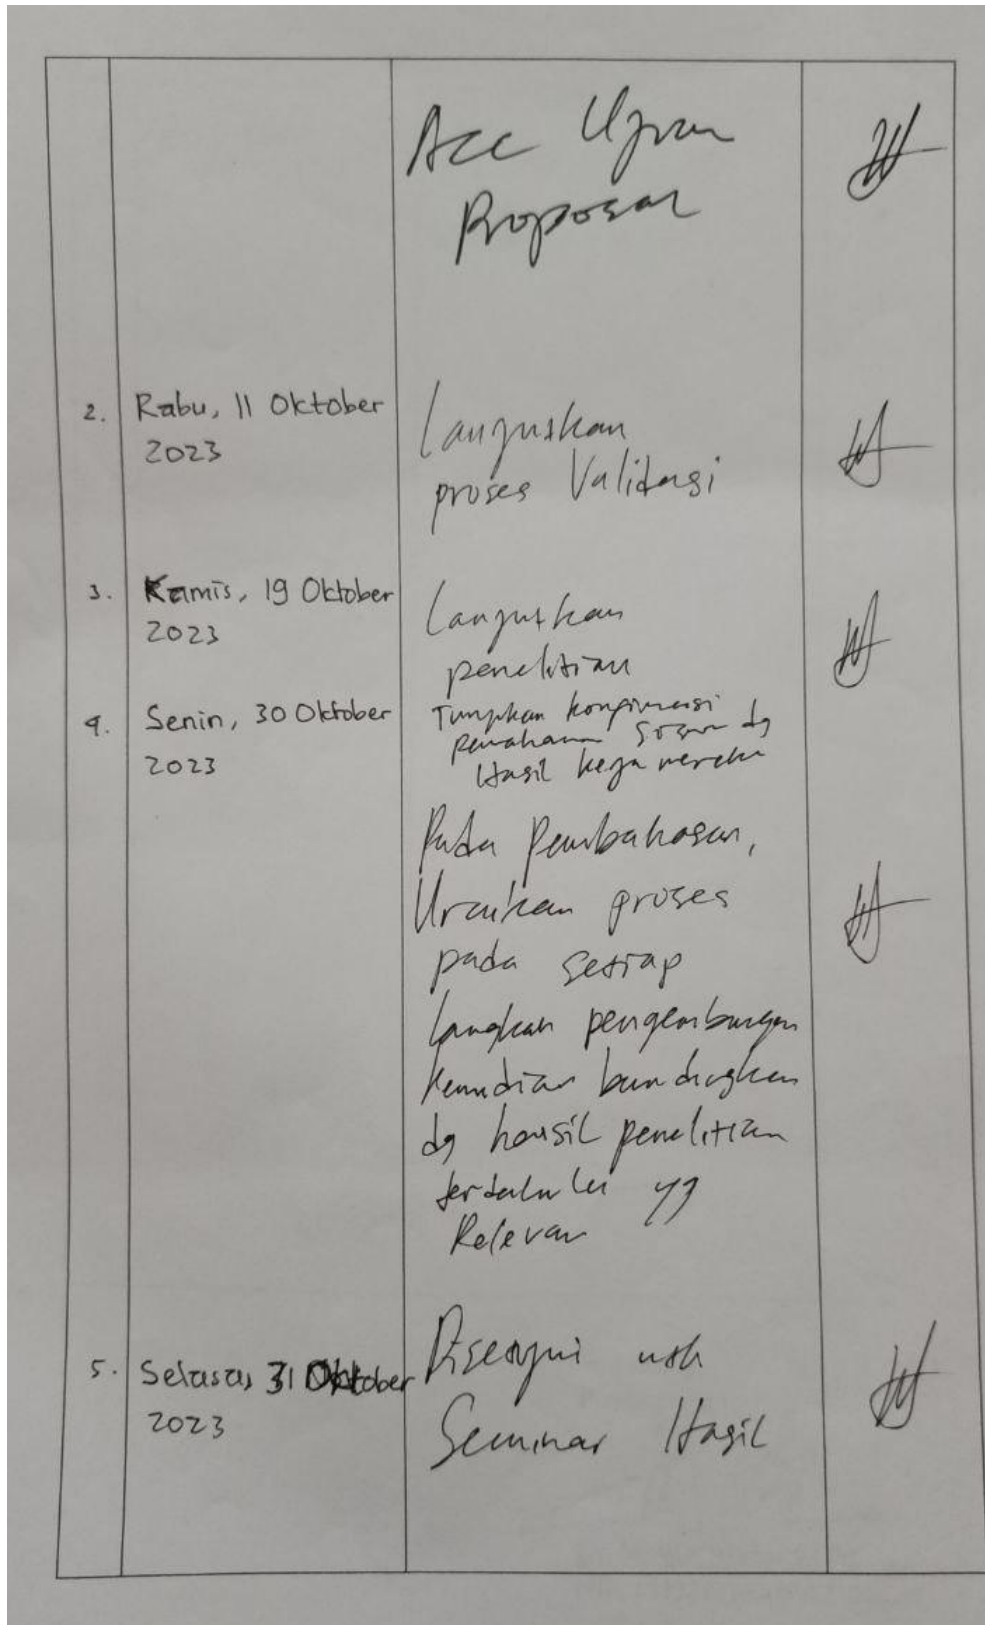 Acc Ujian
Proposal
2. Rabu, 11 Oktober
2023
Lanjutkan
proses Validasi
3. Kamis, 19 Oktober
2023
Lanjutkan
penelitian
4. Senin, 30 Oktober
2023
Tunjukan konfirmasi
pemahaman dg
Hasil kerja mereka
Pada Pembahasan,
Uraikan proses
pada setiap
langkah pengembangan
kemudian bandingkan
dg hasil penelitian
terdahulu yg
Relevan
5. Selasa, 31 Oktober
2023
Disetujui utk
Seminar Hasil